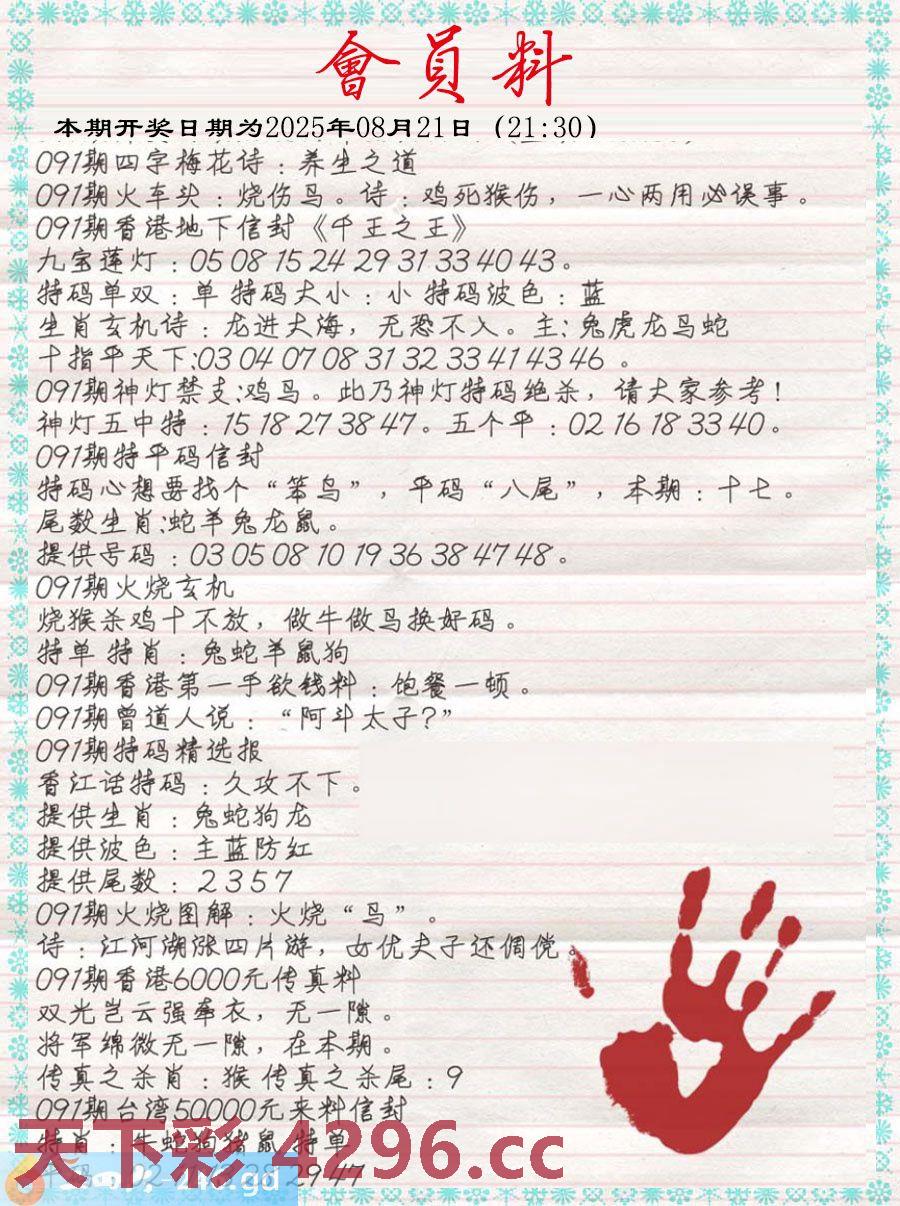 會員料
本期开奖日期为2025年08月21日（21:30）
091期四字梅花诗：养生之道
091期火车头：烧伤鸟。诗：鸡死猴伤，一心两用必误事。
091期香港地下信封《千王之王》
九宝莲灯：05 08 15 24 29 31 33 40 43。
特码单双：单 特码大小：小 特码波色：蓝
生肖玄机诗：龙进大海，无恐不入。主:兔虎龙鸟蛇
十指平天下:03 04 07 08 31 32 33 41 43 46 。
091期神灯禁支:鸡鸟。此乃神灯特码绝杀，请大家参考！
神灯五中特：15 18 27 38 47。五个平：02 16 18 33 40。
091期特平码信封
特码心想要找个“笨鸟”，平码“八尾”，本期：十七。
尾数生肖:蛇羊兔龙鼠。
提供号码：03 05 08 10 19 36 38 47 48。
091期火烧玄机
烧猴杀鸡十不放，做牛做鸟换好码。
特单 特肖：兔蛇羊鼠狗
091期香港第一手欲钱料：饱餐一顿。
091期曾道人说：“阿斗太子？”
091期特码精选报
香江话特码：久攻不下。
提供生肖：兔蛇狗龙
提供波色：主蓝防红
提供尾数：2 3 5 7
091期火烧图解：火烧“鸟”。
诗：江河湖涨四片游，女优夫子还倜傥。
091期香港6000元传真料
双光岂云强牵衣，无一隙。
将军绵微无一隙，在本期。
传真之杀肖：猴 传真之杀尾：9
091期台湾50000元来料信封
特肖：牛蛇狗猪鼠 特单
29 47
天下彩.4296.cc